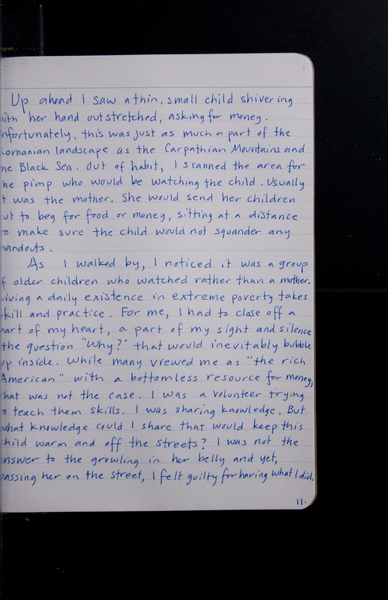 Up ahead I saw a thin, small child shivering
ith her hand outstretched, asking for money.
nfortunately, this was just as much a part of the
omanian landscape as the Carpathian Mountains and
he Black Sea. Out of habit, I scanned the area for
he pimp who would be watching the child. Usually
t was the mother. She would send her children
ut to beg for food or money, sitting at a distance
o make sure the child would not squander any
andouts.
As I walked by, I noticed it was a group
f older children who watched rather than a mother.
iving a daily existence in extreme poverty takes
kill and practice. For me, I had to close off a
art of my heart, a part of my sight and silence
the question "Why?" that would inevitably bubble
up inside. While many viewed me as "the rich
American" with a bottomless resource for money,
hat was not the case. I was a volunteer trying
o teach them skills. I was sharing knowledge. But
what knowledge could I share that would keep this
hild warm and off the streets? I was not the
nswer to the growling in her belly and yet,
assing her on the street, I felt guilty for having what I did.
11.